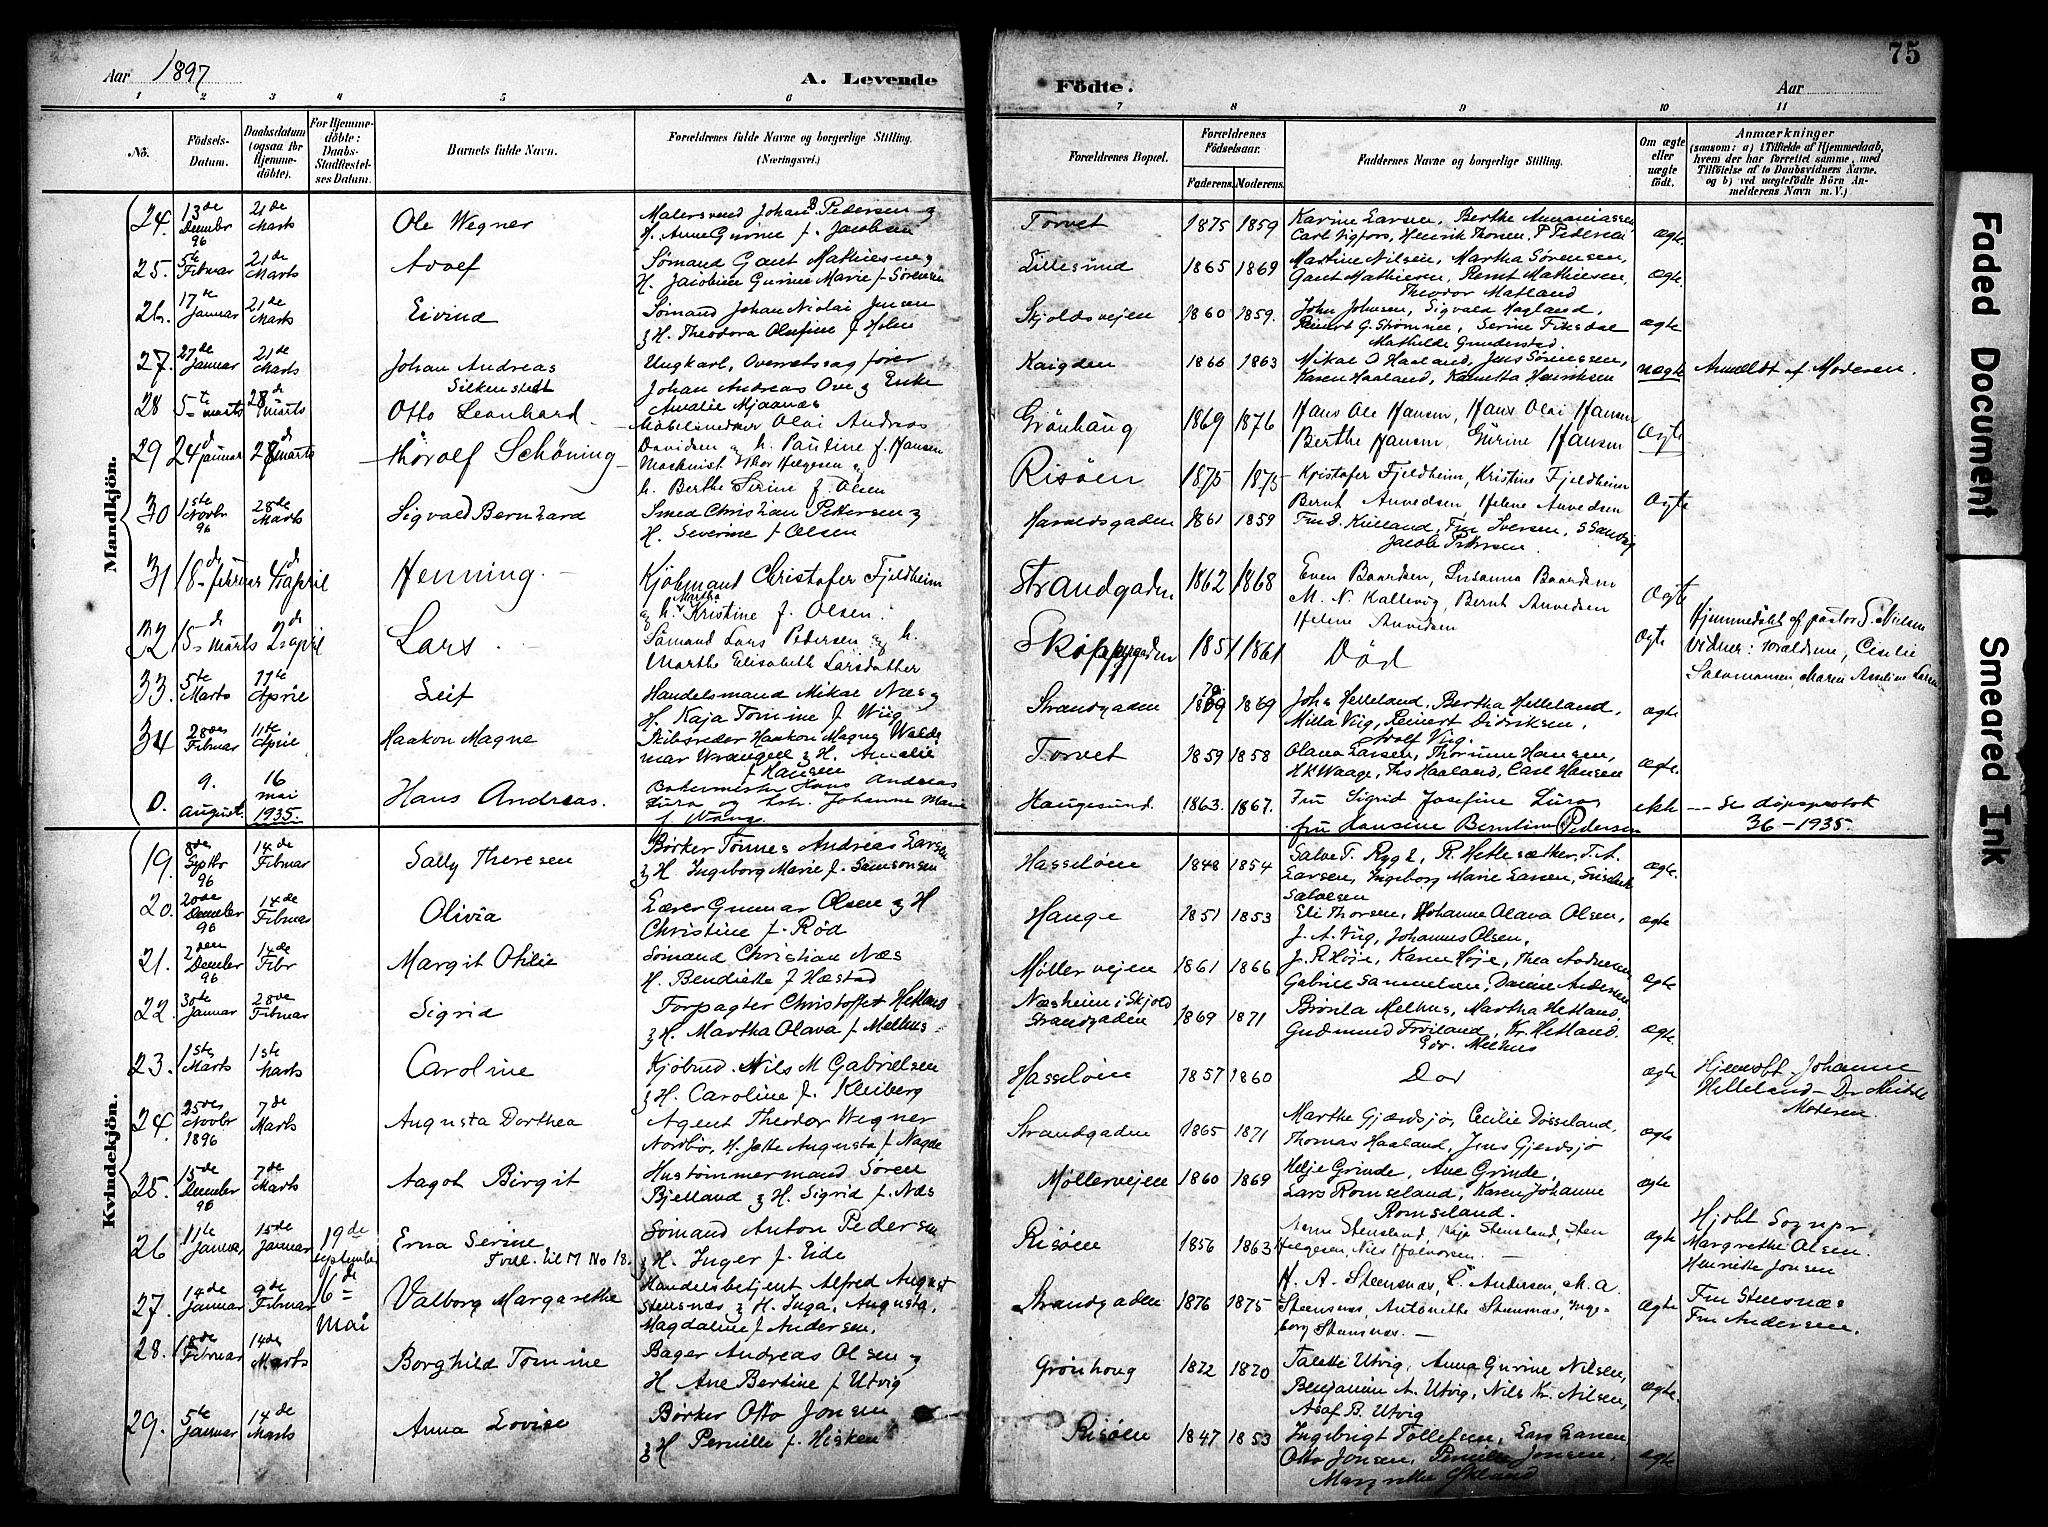 75
Aar 1897
A. Levende Födte.
Aar
1 2 3 4 5 6 7 8 9 10 11
No.
Födsels-Datum.
Daabsdatum (ogsaa for Hjemmedöbte).
For Hjemmedöbte: Daabs-Stadfæstelses Datum.
Barnets fulde Navn.
Forældrenes fulde Navne og borgerlige Stilling. (Næringsvei.)
Forældrenes Bopæl.
Forældrenes Födselsaar.
Faderens. Moderens.
Faddernes Navne og borgerlige Stilling.
Om ægte eller uægte födt.
Anmærkninger (saasom: a) i Tilfælde af Hjemmedaab, hvem der har forrettet samme, med Tilföielse af to Daabsvidners Navne. og b) ved uægtefödte Börn Anmelderens Navn m. V.)
Mandkjön.
24. 13de Decmbr 96 21de Marts Ole Wegner Malersvend Johan B. Pedersen & H. Anne Gurine f. Jacobsen Torvet 1875 1859 Karine Larsen, Berthe Annaniassen, Carl Vigfors, Henrik Thorsen, P Pedersen ægte
25. 5te Februar 21de Marts Adolf Sømand Gaut Mathiesen & H. Jacobine Gurine Marie f. Sørensen Lillesund 1865 1869 Martine Nilsen, Martha Sørensen, Gaut Mathiesen, Bernt Mathiesen, Theodor Matland ægte.
26. 17de Januar 21de Marts Eivind Sømand Johan Nicolai Jensen & H. Theodora Olufine f. Holm Skjoldsvejen 1860 1859. John Johnsen, Sigvald Hagland, Reinert G. Strømnee, Serine Fiksdal Mathilde Gunderstad. ægte
27. 27de Januar 21de Marts Johan Andreas Silkenstedt Ungkarl, Overretssagfører Johan Andreas Ove & Enke Amalie Mjaanæs Kaigaden 1866 1863 Mikal O Haaland, Jens Sørenssen, Karen Haaland, Kanutta Henriksen uægte Anmeldt af Moderen.
28 5te marts 28de marts Otto Leonhard Møbelsnedker Olai Andreas Davidsen og h. Pauline f. Hansen Grönhaug 1869 1876 Hans Ole Hansen, Hans Olai Hansen Berthe Hansen, Gurine Hansen Ægte
29 24d januar 28d marts Thoralf Schöning Maskinist Thor Helgesen og h. Berthe Serine f. Olsen Risöen 1875 1875 Kristofer Fjeldheim, Kristine Fjeldheim Bernt Anvedsen, Helene Anvedsen Ægte
30 1ste Novbr 96 28de Marts Sigvald Bernhard Smed Christian Pettersen & H. Severine f Olsen Haraldsgaden 1861 1859 Fru D. Kielland, Fru Iversen, S Sandvig Jacob Pettersen
31 18de februar 4de april Henning Kjöbmand Christofer Fjeldheim og h. Martha Kristine f. Olsen. Strandgaden 1862 1868 Even Baardsen, Susanna Baardsen M. N. Kallevig, Bernt Anvedsen Helene Anvedsen Ægte
32 15de Marts 2de april Lars Sømand Lars Pedersen og h. Marthe Elisabeth Larsdatter Skippergaden 1851 1861 Død Ægte Hjemmedöbt af pastor S. Nielsen Vidner: Forældrene, Cecilie Salomonsen, Maren Larsen
33. 5te Marts 11te April Leif Handelsmand Mikal Næs & H. Kaja Tomine f. Wiig Strandgaden 1869 70 1869 John Helleland, Bertha Helleland, Milla Viig, Reinert Didriksen, Adolf Viig. ægte
34 28des Februar 11te April Haakon Magne Skibsreder Haakon Magnus Waldemar Wrangell & H. Amalie f Hansen Torvet 1859 1858 Olava Larsen, Thorunne Hansen, H K Waage, Ths Haaland, Carl Hansen ægte.
0. 9. August. 16 mai 1935. Hans Andreas. Bakermester Hans Andreas Lura og hstr. Johanne Marie Haugesund. 1863. 1867. Fru Sigrid Josefine Lura, fru Hansine Berntine Pedersen ekte --- se dåpsprotok 36 - 1935.
Kvindekjön.
19. 8des Septbr 96 14de Februar Sally Theresen Børker Tønnes Andreas Larsen & H. Ingeborg Marie f. Samsonsen Hasseløen 1848 1854 Salve T. Rygg, R. Hetlesæther, T. A. Larsen, Ingeborg Marie Larsen, Salvesen ægte.
20. 20de Decmber 96 14de Februar Olivia Lærer Gunnar Olsen & H Christine f. Rød Hauge 1851 1853 Eli Thorsen, Johanne Olava Olsen, J. A. Viig, Johannes Olsen, ægte
21. 2den Decmber 96 14de Febr Margit Othilie Sømand Christian Næs H. Bendikte f Hæstad Møllervejen 1861 1866 J. R Høje, Karen Høje, Thea Andersen, Gabriel Samuelsen, Daniel Andersen ægte
22. 30te Januar 28de Februar Sigrid Forpagter Christoffer Hetland & H. Martha Olava f. Melhus. Næsheim i Skjold Strandgaden 1869 1871 Brønla Melhus, Martha Hetland, Gudmund Frøiland, Kr. Hetland. Edv. Melhus ægte.
23. 1ste Marts 1ste Marts Caroline Kjøbmd. Nils M Gabrielsen & H. Caroline f. Kleiberg Hasseløen 1857 1860 Død ægte Hjemdbt Johanne Helleland - Moderen.
24. 25des Novbr 1896 7de Marts Augusta Dorthea Agent Theodor Wegner Nordbø, H. Jette Augusta f. Nagde Strandgaden 1865 1871 Marthe Gjærdsjø, Cecilie Døsseland, Thomas Haaland, Jens Gjerdsjø ægte
25. 15de Decmber 96 7de Marts Aagot Birgit Hustømmermand Søren Bjelland & H. Sigrid f. Næs Møllervejen 1860 1869 Helje Grinde, Ane Grinde, Lars Romseland, Karen Johanne Romseland. ægte
26 11te Januar 15de Januar 19de september Erna Serine Tvill. til M No 18. Sømand Anton Pedersen & H. Inger f. Eide Risøen 1856 1863 Arne Stensland, Kaja Stensland, Sten Helgesen, Nils Halvorsen. ægte Hjdbt Sognepr Margrethe Olsen. Henriette Jonsen
27. 14de Januar 9de Februar 16de Mai Valborg Margarethe Handelsbetjent Alfred August Stensnæs, & H. Inga, Augusta, Magdaline f. Andersen. Strandgaden 1876 1875 H. A. Stensnæs, L. Andersen, M. A. Stensnæs, Antonette Stensnæs, Ingeborg Stensnæs. ægte Fru Stensnæs Fru Andersen.
28. 18de Februar 14de Marts Borghild Tomine Bager Andreas Olsen & H Ane Bertine f Utvig Grønhoug 1872 1870 Talette Utvig, Anna Gurine Nilsen, Benjamin A. Utvig, Nils Kr. Nilsen, Asaf B. Utvig ægte.
29. 5te Januar 14de Marts Anna Lovise Børker Otto Jonsen & H. Pernille f. Hisken Risøen 1847 1853 Ingebrigt Tollefsen, Lars Larsen, Otto Jonsen, Pernille Jonsen, Margrethe Økland ægte
Faded Document
Smeared Ink